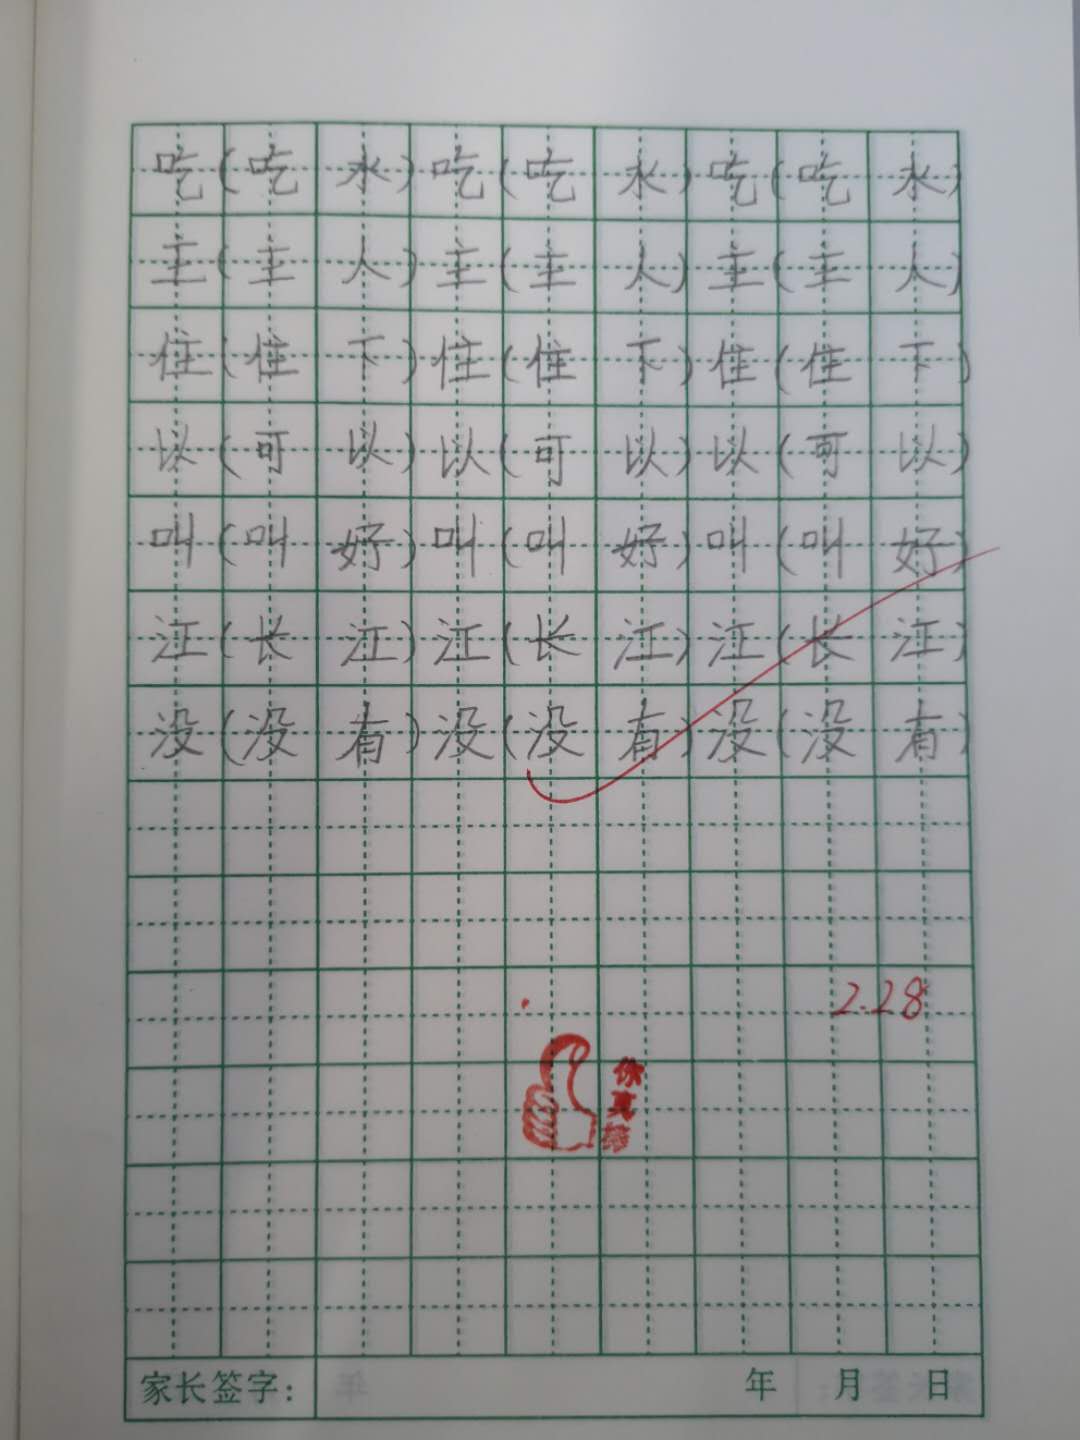 吃(吃水)吃(吃水)吃(吃水)
主(主人)主(主人)主(主人)
住(住下)住(住下)住(住下)
以(可以)以(可以)以(可以)
叫(叫好)叫(叫好)叫(叫好)
江(长江)江(长江)江(长江)
没(没有)没(没有)没(没有)
2.28
你真棒
家长签字： 年 月 日